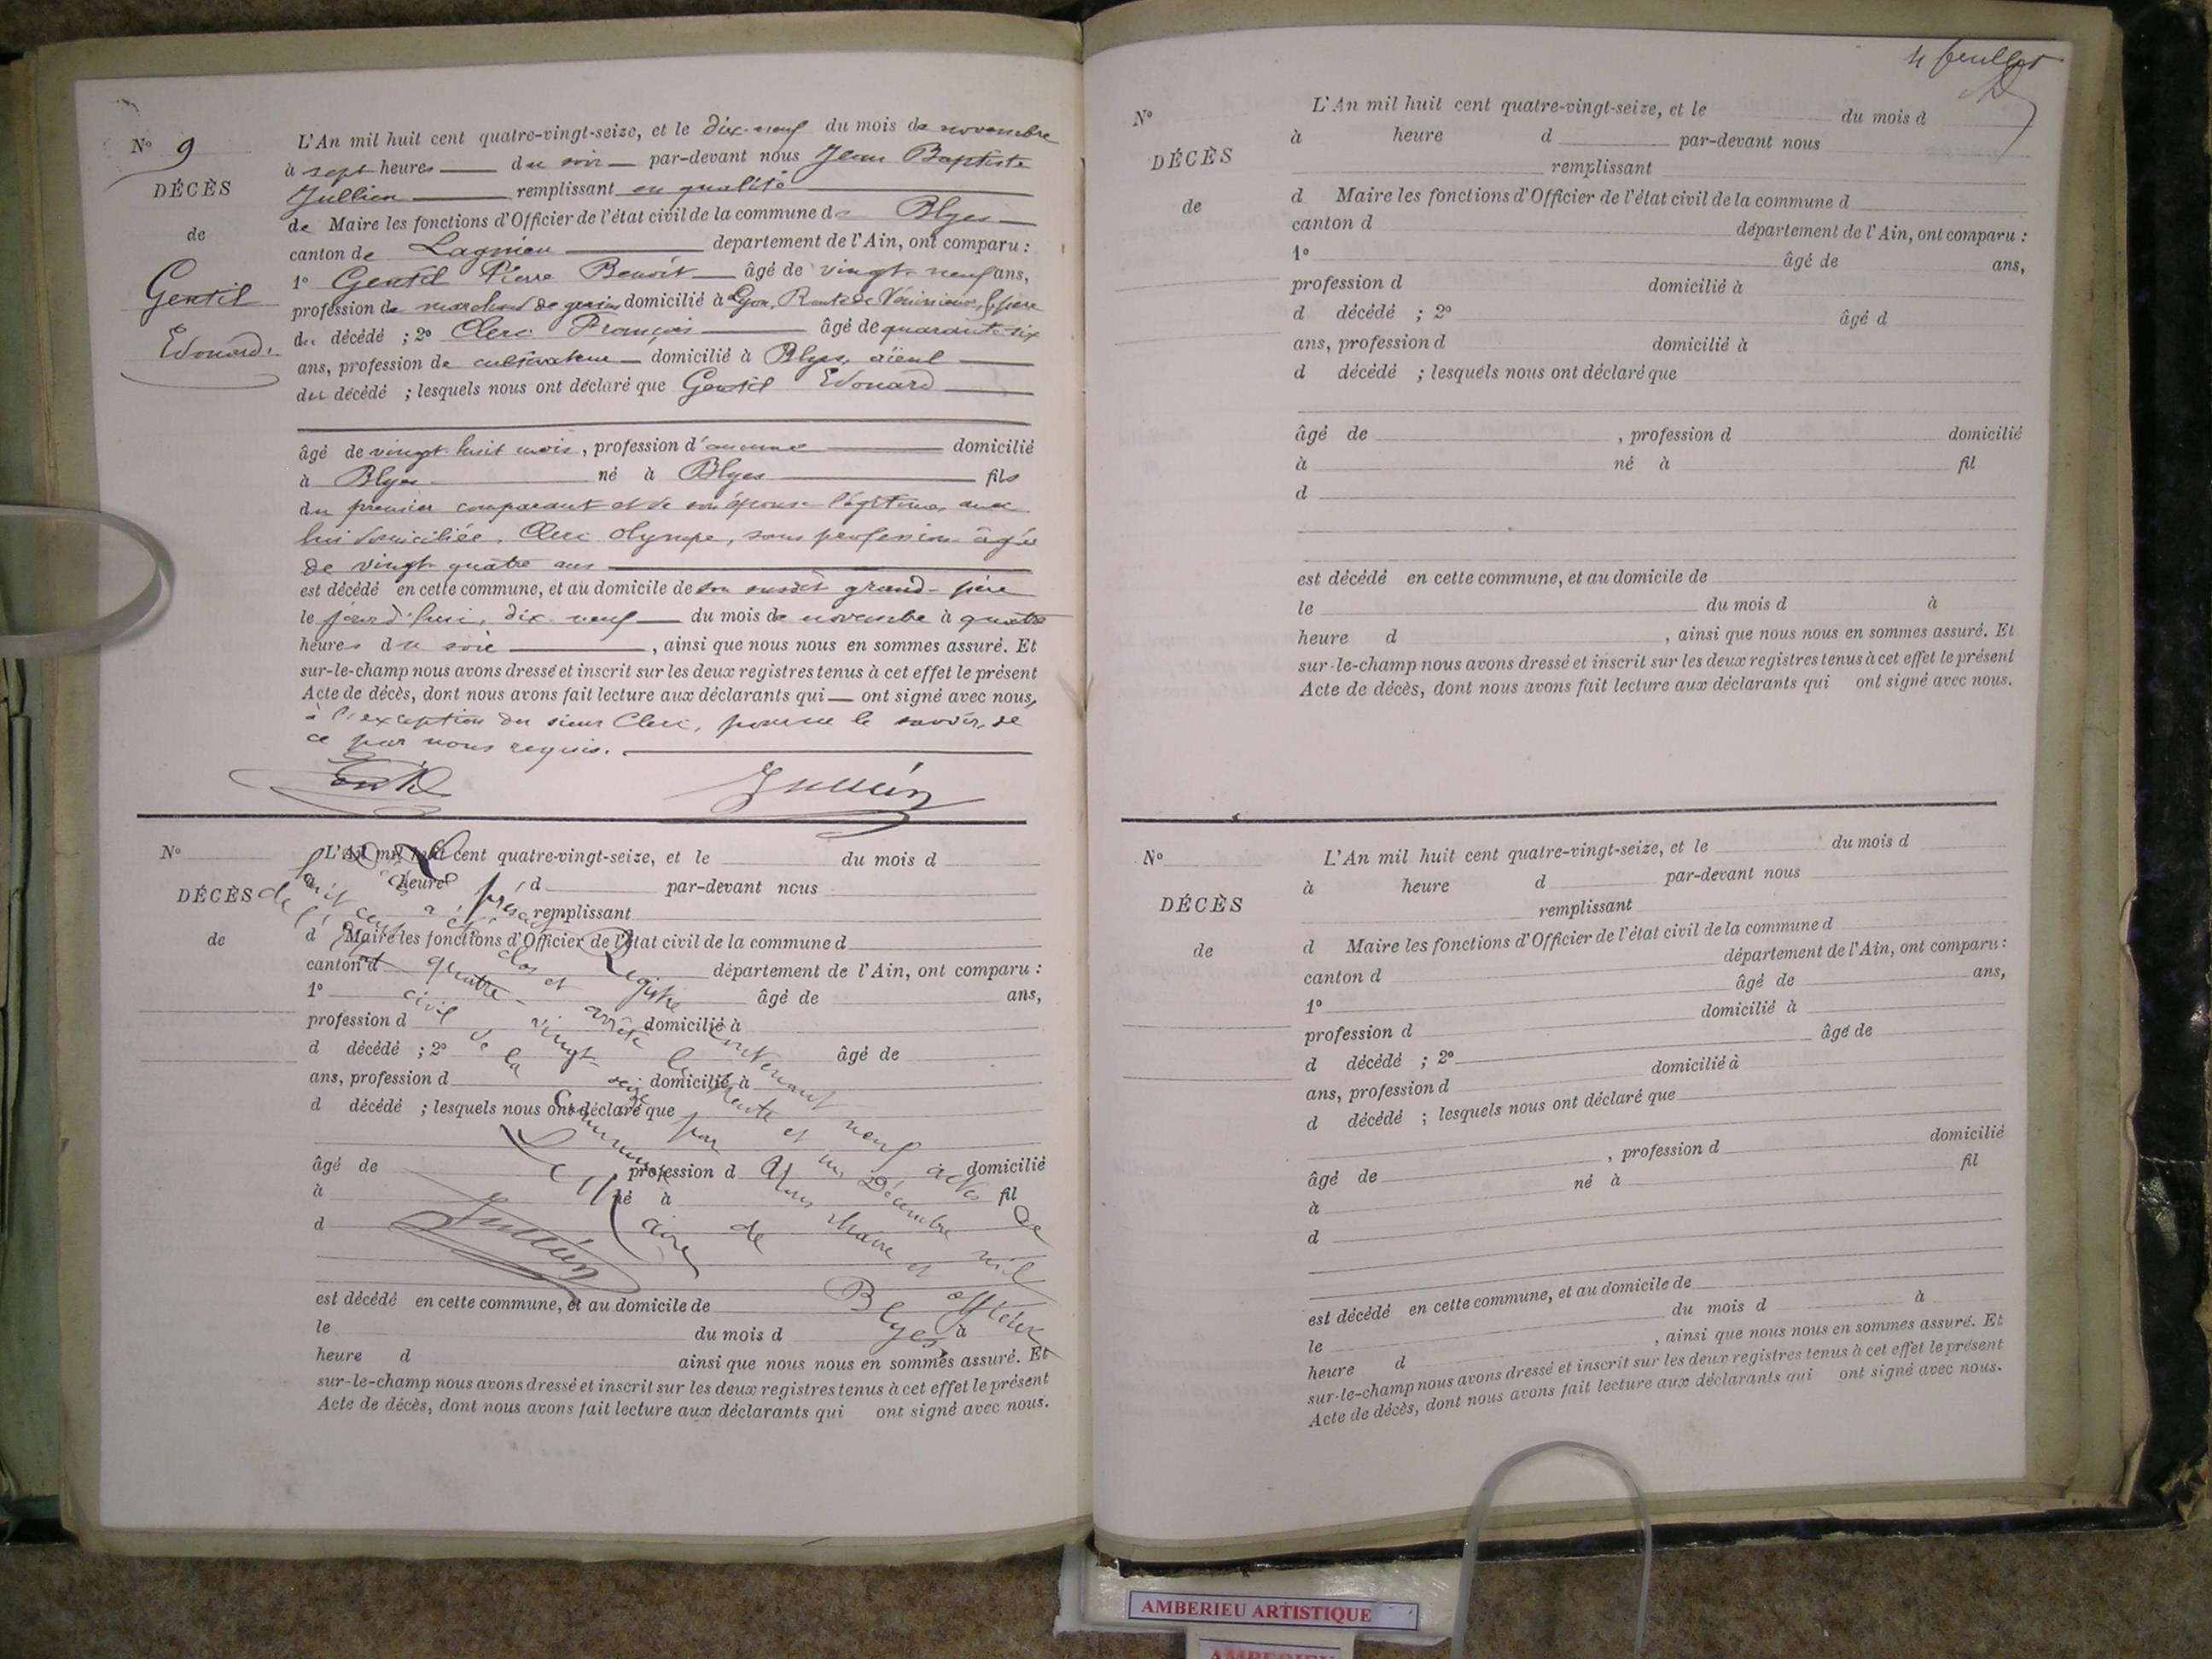 N° 9
DÉCÈS
de
Gentil
Edouard.
L'An mil huit cent quatre-vingt-seize, et le dix-neuf du mois de novembre
à sept heures du soir par-devant nous Jean Baptiste
Jullien remplissant en qualité
de Maire les fonctions d'Officier de l'état civil de la commune de Blyes
canton de Lagnieu département de l'Ain, ont comparu :
1° Gentil Pierre Benoit âgé de vingt-neuf ans,
profession de marchand de grains domicilié à Lyon, Route de Vénissieux, père
du décédé ; 2° Clerc François âgé de quarante-six
ans, profession de cultivateur domicilié à Blyes, aïeul
du décédé ; lesquels nous ont déclaré que Gentil Edouard
âgé de vingt-huit mois, profession d'aucune domicilié
à Blyes né à Blyes fils
du premier comparant et de son épouse légitime, avec
lui domiciliée, Clerc Olympe, sans profession âgée
de vingt-quatre ans
est décédé en cette commune, et au domicile de son susdit grand-père
le jourd'hui, dix-neuf du mois de novembre à quatre
heures du soir, ainsi que nous nous en sommes assuré. Et
sur-le-champ nous avons dressé et inscrit sur les deux registres tenus à cet effet le présent
Acte de décès, dont nous avons fait lecture aux déclarants qui ont signé avec nous,
à l'exception du sieur Clerc, pour ne le savoir, de
ce par nous requis.
Gentil Jullien
N°
DÉCÈS
de
L'An mil huit cent quatre-vingt-seize, et le du mois d
à heure d par-devant nous
remplissant
d Maire les fonctions d'Officier de l'état civil de la commune d
canton d département de l'Ain, ont comparu :
1° âgé de ans,
profession d domicilié à
d décédé ; 2° âgé de
ans, profession d domicilié à
d décédé ; lesquels nous ont déclaré que
âgé de profession d domicilié
à né à fil
d
est décédé en cette commune, et au domicile de
le du mois d à
heure d ainsi que nous nous en sommes assuré. Et
sur-le-champ nous avons dressé et inscrit sur les deux registres tenus à cet effet le présent
Acte de décès, dont nous avons fait lecture aux déclarants qui ont signé avec nous.
Le présent Registre contenant neuf actes de
Décès a été clos et arrêté le trente et un Décembre mil
huit cent quatre-vingt-seize par Nous Maire et officier
de l'état civil de la Commune de Blyes.
Le Maire
Jullien
4 feuillet
N°
DÉCÈS
de
L'An mil huit cent quatre-vingt-seize, et le du mois d
à heure d par-devant nous
remplissant
d Maire les fonctions d'Officier de l'état civil de la commune d
canton d département de l'Ain, ont comparu :
1° âgé de ans,
profession d domicilié à
d décédé ; 2° âgé d
ans, profession d domicilié à
d décédé ; lesquels nous ont déclaré que
âgé de , profession d domicilié
à né à fil
d
est décédé en cette commune, et au domicile de
le du mois d à
heure d , ainsi que nous nous en sommes assuré. Et
sur-le-champ nous avons dressé et inscrit sur les deux registres tenus à cet effet le présent
Acte de décès, dont nous avons fait lecture aux déclarants qui ont signé avec nous.
N°
DÉCÈS
de
L'An mil huit cent quatre-vingt-seize, et le du mois d
à heure d par-devant nous
remplissant
d Maire les fonctions d'Officier de l'état civil de la commune d
canton d département de l'Ain, ont comparu :
1° âgé de ans,
profession d domicilié à
d décédé ; 2° âgé de
ans, profession d domicilié à
d décédé ; lesquels nous ont déclaré que
âgé de , profession d domicilié
à né à fil
d
est décédé en cette commune, et au domicile de
le du mois d à
heure d , ainsi que nous nous en sommes assuré. Et
sur-le-champ nous avons dressé et inscrit sur les deux registres tenus à cet effet le présent
Acte de décès, dont nous avons fait lecture aux déclarants qui ont signé avec nous.
AMBERIEU ARTISTIQUE
AMBERIEU